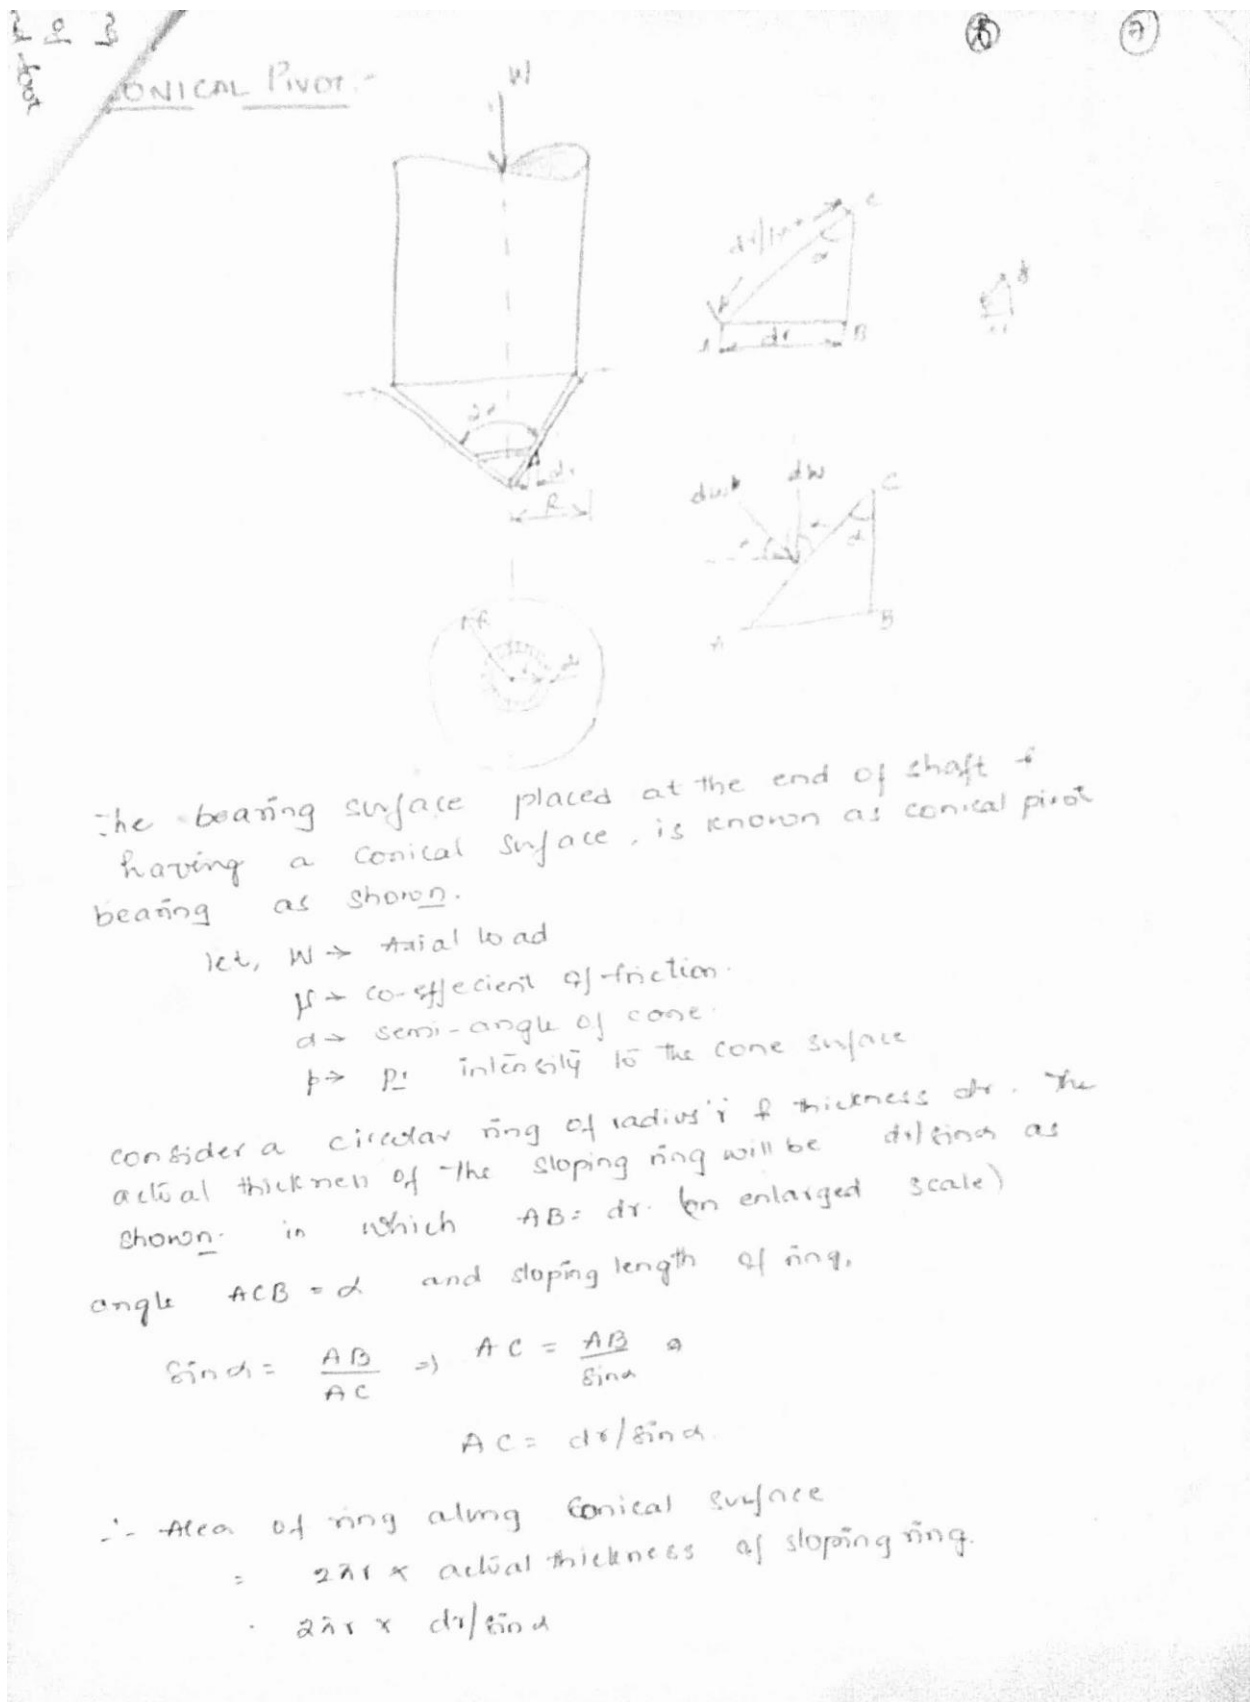 foot
⑦
ONICAL PIVOT:-
W
dr/sinα
C
α
A
dr
B
2α
dr
R
dW
C
α
α
A
B
R
dr
The bearing surface placed at the end of shaft &
having a conical surface, is known as conical pivot
bearing as shown.
let, W → Axial load
μ → co-effecient of friction.
α → semi-angle of cone.
p → Pr intensity to the cone surface
consider a circular ring of radius 'r' & thickness dr. The
actual thickness of the sloping ring will be dr/sinα as
shown. in which AB = dr. (on enlarged scale)
angle ACB = α and sloping length of ring,
Sinα = AB/AC ⇒ AC = AB/Sinα
AC = dr/sinα.
∴ Area of ring along conical surface
= 2πr × actual thickness of sloping ring.
2πr × dr/sinα